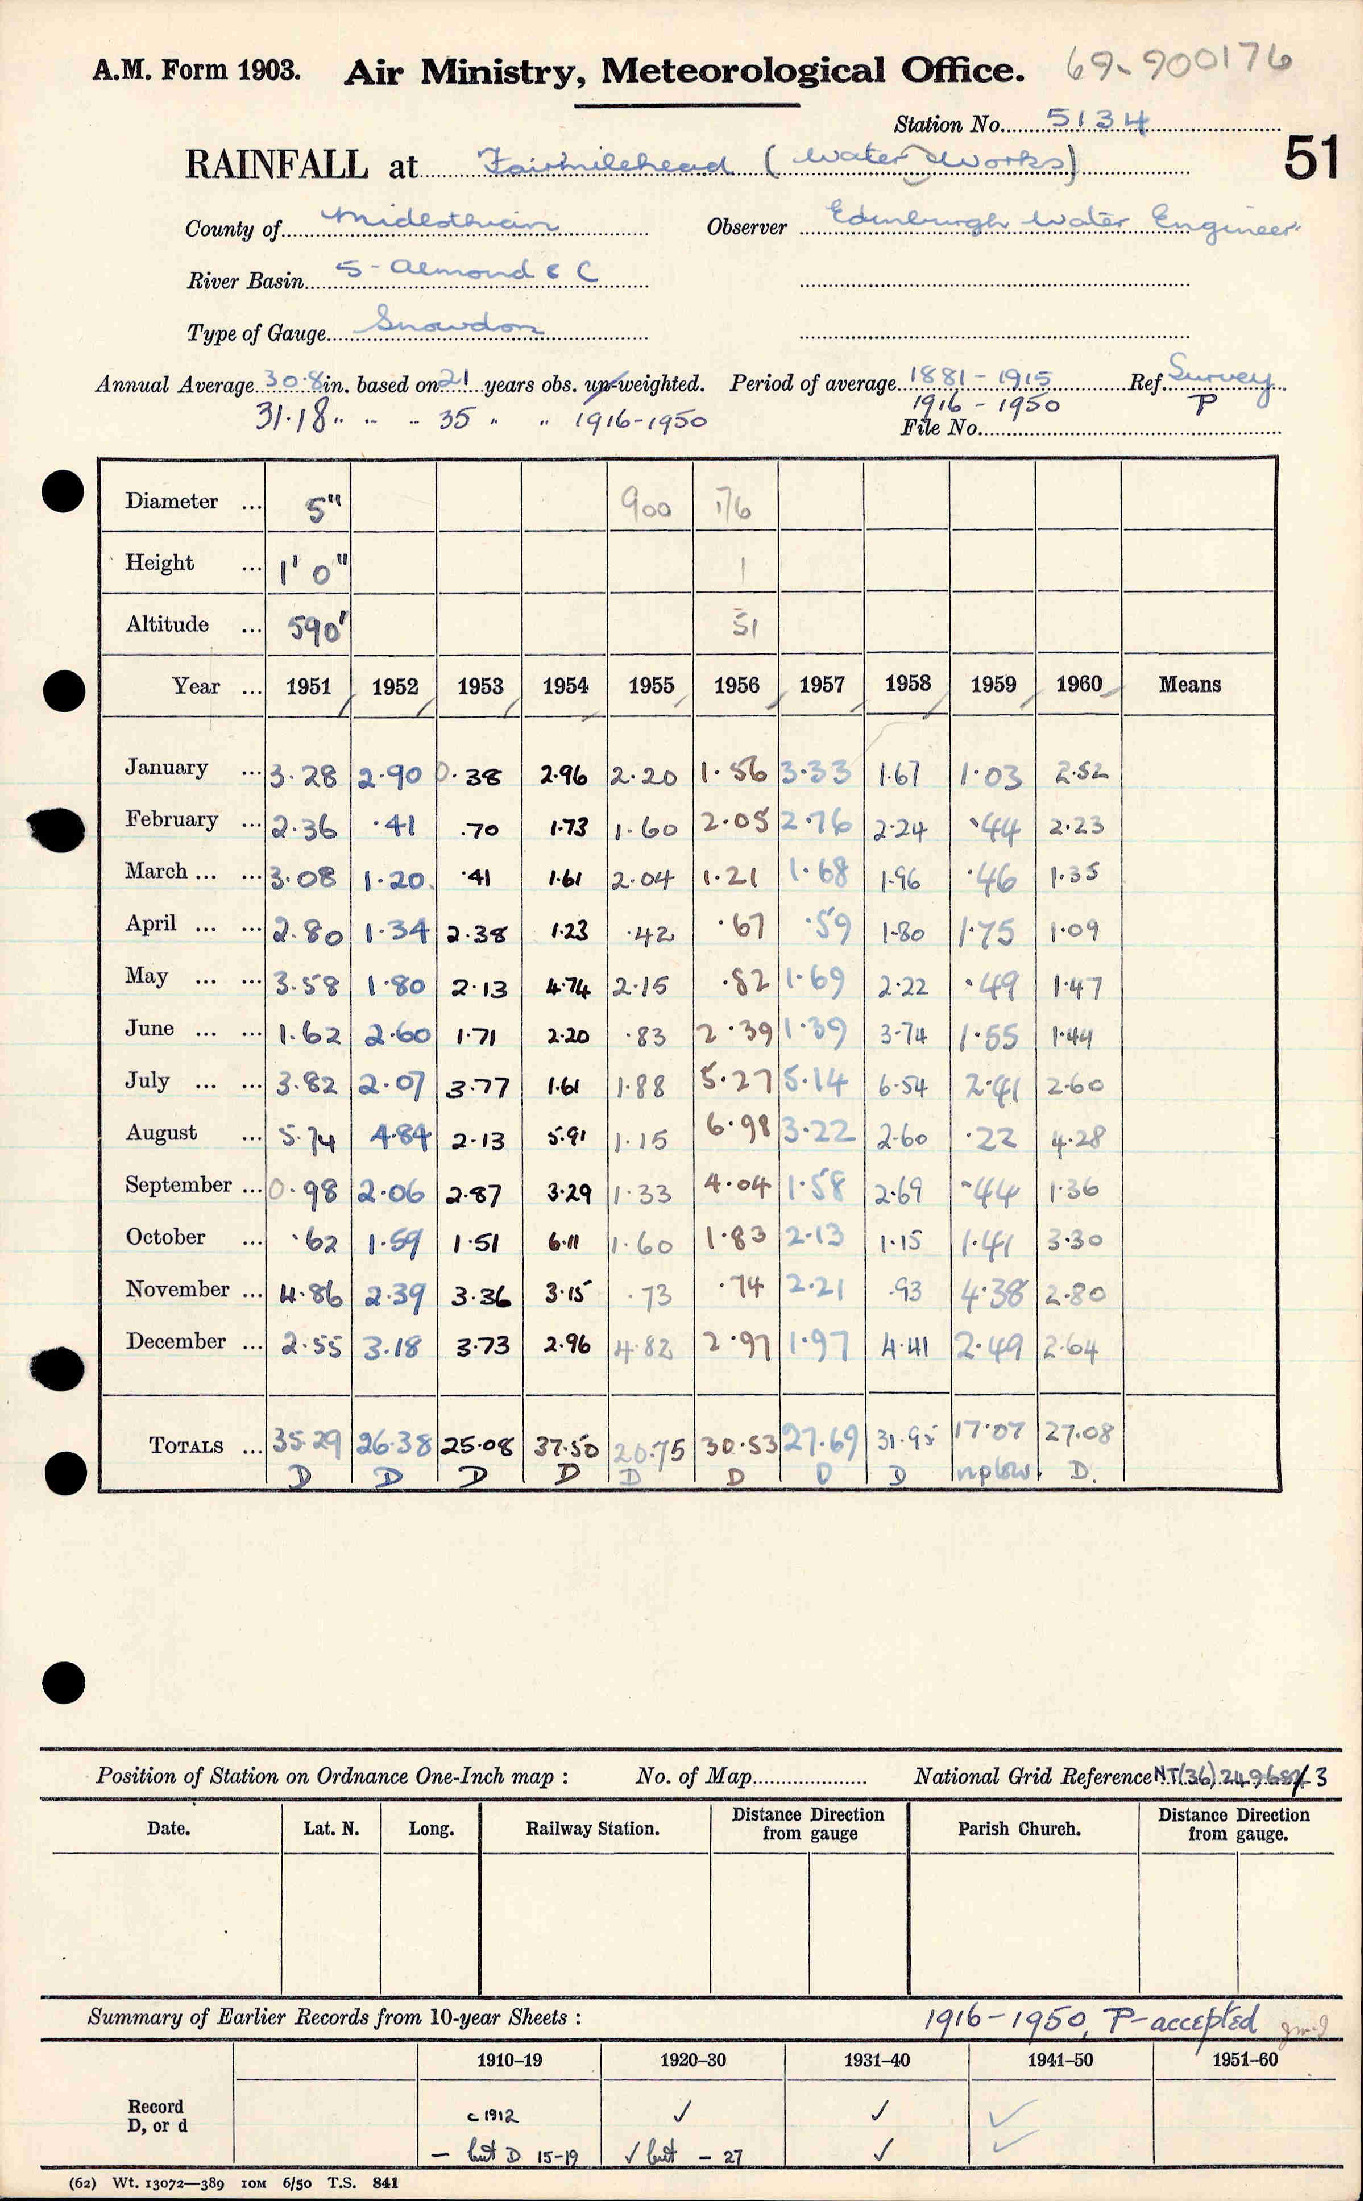 A.M. Form 1903. Air Ministry, Meteorological Office. 69-900176
Station No. 5134
51
RAINFALL at Fairmilehead (Water Works)
County of Midlothian Observer Edinburgh Water Engineer
River Basin 5-Almond &C
Type of Gauge Snowdon
Annual Average 30.8 in. based on 21 years obs. up-weighted. Period of average 1881-1915 Ref. Survey
31.18 " " " 35 " " 1916-1950 1916-1950 P
File No.
Diameter ... 5" 900 176
Height ... 1' 0" 1
Altitude ... 590' 51
Year ... 1951 1952 1953 1954 1955 1956 1957 1958 1959 1960 Means
January ... 3.28 2.90 0.38 2.96 2.20 1.56 3.33 1.67 1.03 2.52
February ... 2.36 .41 .70 1.73 1.60 2.05 2.76 2.24 .44 2.23
March ... ... 3.08 1.20 .41 1.61 2.04 1.21 1.68 1.96 .46 1.35
April ... ... 2.80 1.34 2.38 1.23 .42 .67 .59 1.80 1.75 1.09
May ... ... 3.58 1.80 2.13 4.74 2.15 .82 1.69 2.22 .49 1.47
June ... ... 1.62 2.60 1.71 2.20 .83 2.39 1.39 3.74 1.55 1.44
July ... ... 3.82 2.07 3.77 1.61 1.88 5.27 5.14 6.54 2.41 2.60
August ... 5.74 4.84 2.13 5.91 1.15 6.98 3.22 2.60 .22 4.28
September ... 0.98 2.06 2.87 3.29 1.33 4.04 1.58 2.69 .44 1.36
October ... .62 1.59 1.51 6.11 1.60 1.83 2.13 1.15 1.41 3.30
November ... 4.86 2.39 3.36 3.15 .73 .74 2.21 .93 4.38 2.80
December ... 2.55 3.18 3.73 2.96 4.82 2.97 1.97 4.41 2.49 2.64
TOTALS ... 35.29 26.38 25.08 37.50 20.75 30.53 27.69 31.95 17.07 27.08
D D D D D D D D D.
Position of Station on Ordnance One-Inch map : No. of Map National Grid Reference NT(36) 249 68 3
Date. Lat. N. Long. Railway Station. Distance Direction from gauge Parish Church. Distance Direction from gauge.
Summary of Earlier Records from 10-year Sheets : 1916-1950, P-accepted
1910-19 1920-30 1931-40 1941-50 1951-60
Record c 1912 ✓ ✓ ✓
D, or d - but D 15-19 ✓ but - 27 ✓ ✓
(62) Wt. 13072—389 10M 6/50 T.S. 841